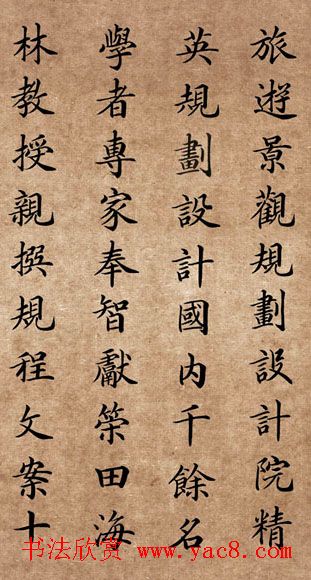 旅遊景觀規劃設計院精
英規劃設計國内千餘名
學者專家奉智獻策田海
林教授親撰規程文案十
书法欣赏 www.yac8.com